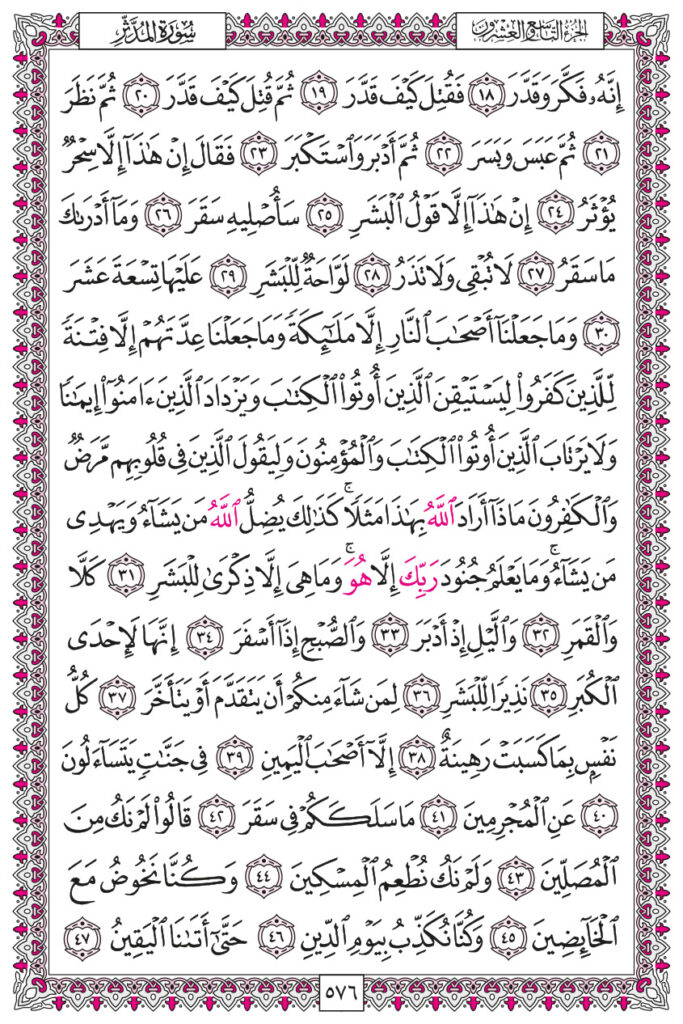 الجزء التاسع والعشرون
سُورَةُ المُدَّثِّرِ
إِنَّهُۥ فَكَّرَ وَقَدَّرَ ١٨ فَقُتِلَ كَيۡفَ قَدَّرَ ١٩ ثُمَّ قُتِلَ كَيۡفَ قَدَّرَ ٢٠ ثُمَّ نَظَرَ
٢١ ثُمَّ عَبَسَ وَبَسَرَ ٢٢ ثُمَّ أَدۡبَرَ وَٱسۡتَكۡبَرَ ٢٣ فَقَالَ إِنۡ هَٰذَآ إِلَّا سِحۡرٞ
يُؤۡثَرُ ٢٤ إِنۡ هَٰذَآ إِلَّا قَوۡلُ ٱلۡبَشَرِ ٢٥ سَأُصۡلِيهِ سَقَرَ ٢٦ وَمَآ أَدۡرَىٰكَ
مَا سَقَرُ ٢٧ لَا تُبۡقِي وَلَا تَذَرُ ٢٨ لَوَّاحَةٞ لِّلۡبَشَرِ ٢٩ عَلَيۡهَا تِسۡعَةَ عَشَرَ
٣٠ وَمَا جَعَلۡنَآ أَصۡحَٰبَ ٱلنَّارِ إِلَّا مَلَٰٓئِكَةٗۖ وَمَا جَعَلۡنَا عِدَّتَهُمۡ إِلَّا فِتۡنَةٗ
لِّلَّذِينَ كَفَرُواْ لِيَسۡتَيۡقِنَ ٱلَّذِينَ أُوتُواْ ٱلۡكِتَٰبَ وَيَزۡدَادَ ٱلَّذِينَ ءَامَنُوٓاْ إِيمَٰنٗا
وَلَا يَرۡتَابَ ٱلَّذِينَ أُوتُواْ ٱلۡكِتَٰبَ وَٱلۡمُؤۡمِنُونَ وَلِيَقُولَ ٱلَّذِينَ فِي قُلُوبِهِم مَّرَضٞ
وَٱلۡكَٰفِرُونَ مَاذَآ أَرَادَ ٱللَّهُ بِهَٰذَا مَثَلٗاۚ كَذَٰلِكَ يُضِلُّ ٱللَّهُ مَن يَشَآءُ وَيَهۡدِي
مَن يَشَآءُۚ وَمَا يَعۡلَمُ جُنُودَ رَبِّكَ إِلَّا هُوَۚ وَمَا هِيَ إِلَّا ذِكۡرَىٰ لِلۡبَشَرِ ٣١ كَلَّا
وَٱلۡقَمَرِ ٣٢ وَٱلَّيۡلِ إِذۡ أَدۡبَرَ ٣٣ وَٱلصُّبۡحِ إِذَآ أَسۡفَرَ ٣٤ إِنَّهَا لَإِحۡدَى
ٱلۡكُبَرِ ٣٥ نَذِيرٗا لِّلۡبَشَرِ ٣٦ لِمَن شَآءَ مِنكُمۡ أَن يَتَقَدَّمَ أَوۡ يَتَأَخَّرَ ٣٧ كُلُّ
نَفۡسِۭ بِمَا كَسَبَتۡ رَهِينَةٌ ٣٨ إِلَّآ أَصۡحَٰبَ ٱلۡيَمِينِ ٣٩ فِي جَنَّٰتٖ يَتَسَآءَلُونَ
٤٠ عَنِ ٱلۡمُجۡرِمِينَ ٤١ مَا سَلَكَكُمۡ فِي سَقَرَ ٤٢ قَالُواْ لَمۡ نَكُ مِنَ
ٱلۡمُصَلِّينَ ٤٣ وَلَمۡ نَكُ نُطۡعِمُ ٱلۡمِسۡكِينَ ٤٤ وَكُنَّا نَخُوضُ مَعَ
ٱلۡخَآئِضِينَ ٤٥ وَكُنَّا نُكَذِّبُ بِيَوۡمِ ٱلدِّينِ ٤٦ حَتَّىٰٓ أَتَىٰنَا ٱلۡيَقِينُ ٤٧
٥٧٦